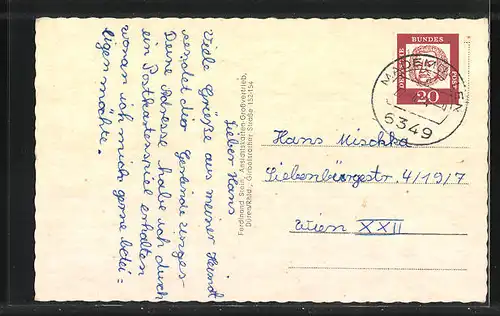 Lieber Hans
Viele Grüße aus meiner Heimat
sendet dir Gerlinde Unger
Deine Adresse habe ich durch
ein Postkartenspiel erhalten
woran ich mich gerne betei=
ligen möchte.
Ferdinand Stein, Ansichtskarten-Großvertrieb,
Düren/Rhld., Girbelsrather Straße 152-154
DEUTSCHE
BUNDES
POST
20
6349
Hans Mischka
Siebenbürgestr. 4/19/7
Wien XXII